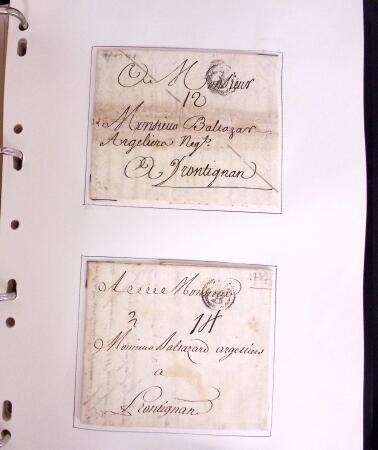 A Monsieur
12
A Monsieur Baltazar
Argeliers Negt.
A Frontignan
1787
A Monsieur
14
Monsieur Baltazard argelliers
a
Frontignan